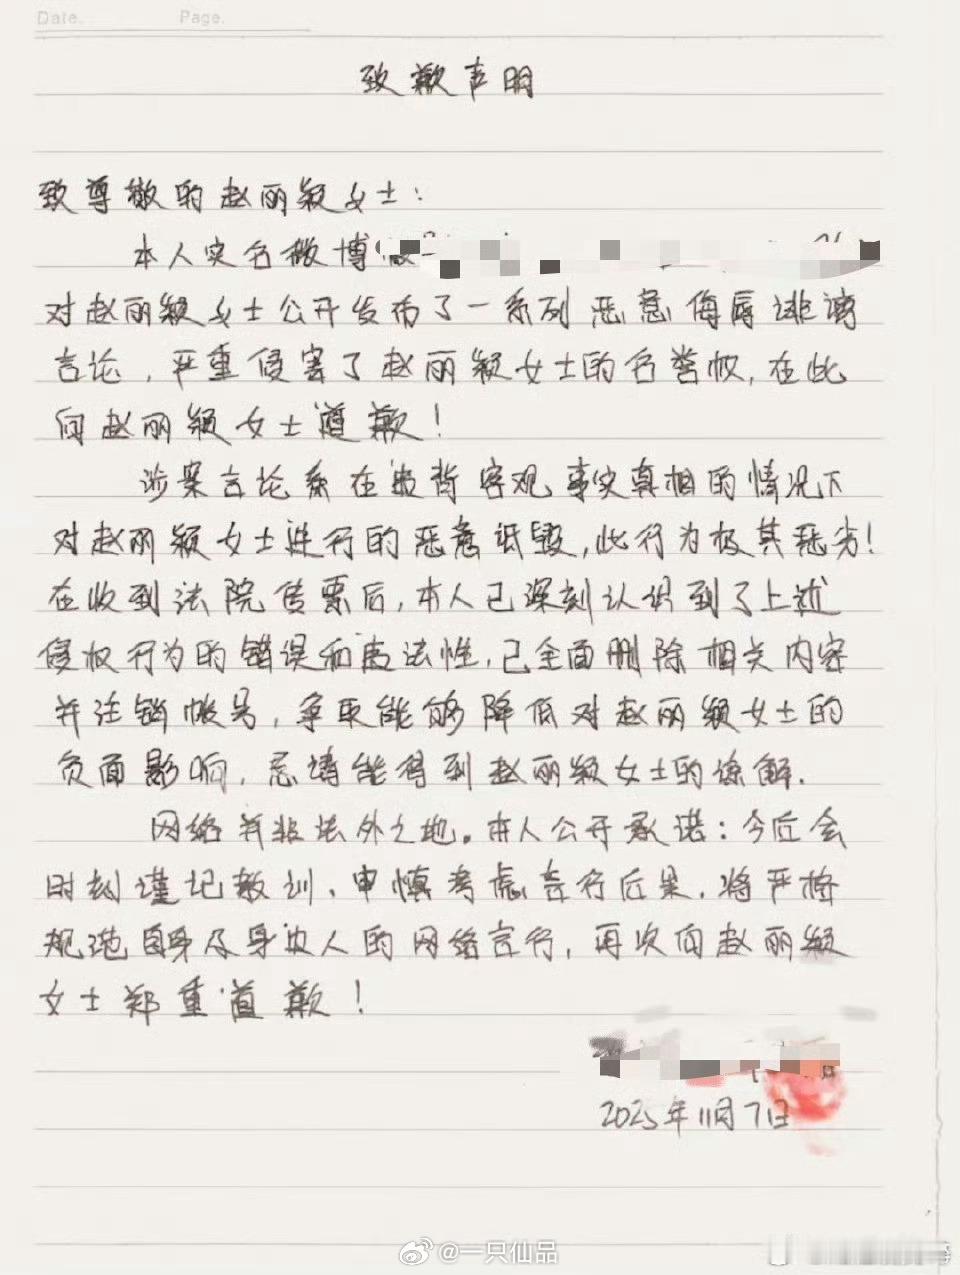 Date.    Page.
致歉声明
致尊敬的赵丽颖女士：
本人实名微博
对赵丽颖女士公开发布了一系列恶意侮辱诽谤
言论，严重侵害了赵丽颖女士的名誉权，在此
向赵丽颖女士道歉！
涉案言论系在违背客观事实真相的情况下
对赵丽颖女士进行的恶意诋毁，此行为极其恶劣！
在收到法院传票后，本人已深刻认识到了上述
侵权行为的错误和违法性，已全面删除相关内容
并注销帐号，争取能够降低对赵丽颖女士的
负面影响，恳请能得到赵丽颖女士的谅解.
网络并非法外之地。本人公开承诺：今后会
时刻谨记教训、审慎考虑言行后果，将严格
规范自身及身边人的网络言行，再次向赵丽颖
女士郑重道歉！
2025年11月7日
@一只仙品